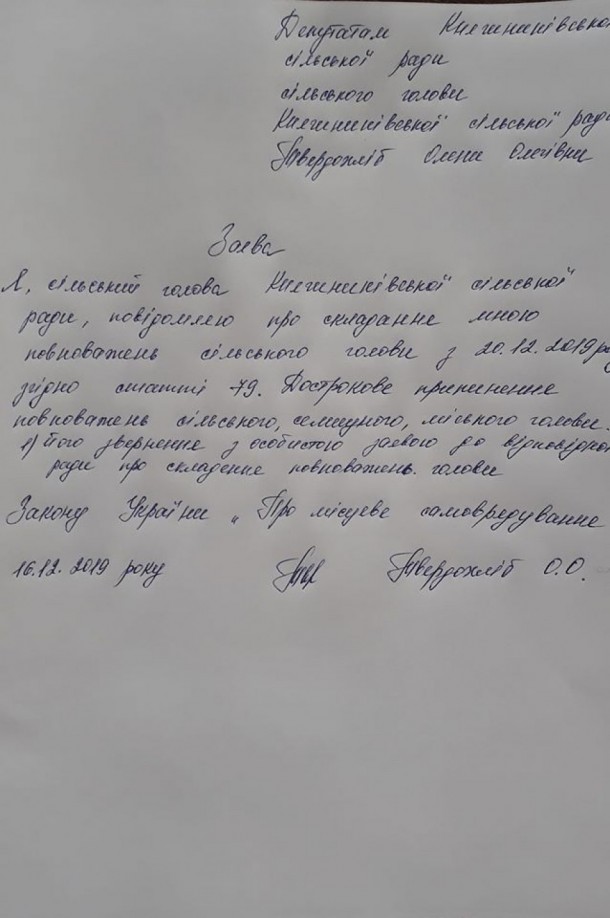 Депутатам Княгининівської
сільської ради
сільського голови
Княгининівської сільської ради
Твердохліб Олени Олегівни
Заява
Я, сільський голова Княгининівської сільської
ради, повідомляю про складання мною
повноважень сільського голови з 20.12.2019 ро
згідно статті 79. Дострокове припинення
повноважень сільського, селищного, міського голови.
1) його звернення з особистою заявою до відповідної
ради про складення повноважень голови
Закону України „Про місцеве самоврядування
16.12. 2019 року Твердохліб О.О.